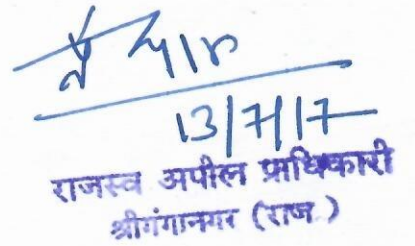 13/7/17
राजस्व अपील प्राधिकारी
श्रीगंगानगर (राज.)